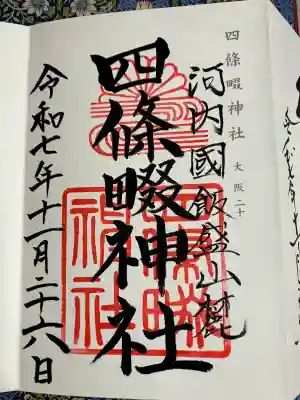 四條畷神社 大阪二十
河内國飯盛山麓
四條畷神社
令和七年十一月二十六日